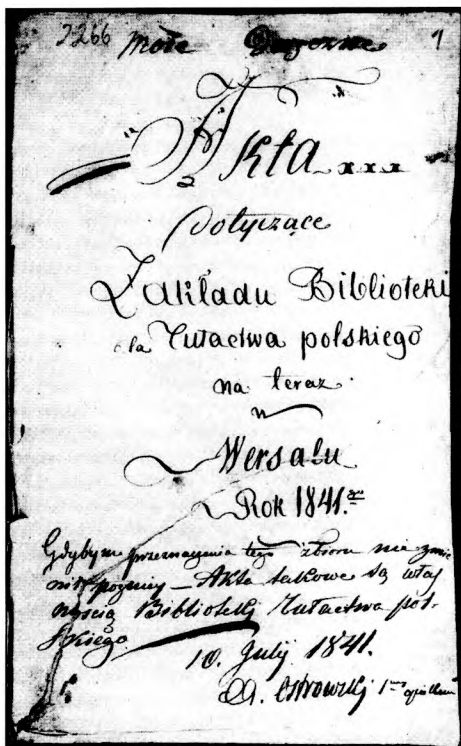 2266 Może 1
Akta
dotyczące
Zakładu Biblioteki
dla Tułactwa polskiego
na teraz
w
Wersalu
Rok 1841.
Gdybym przeznaczenia tego zbioru nie zmie
nił poźniey – Akta takowe są włas
nością Biblioteki Tułactwa pol-
skiego
10. July 1841.
A. Ostrowski